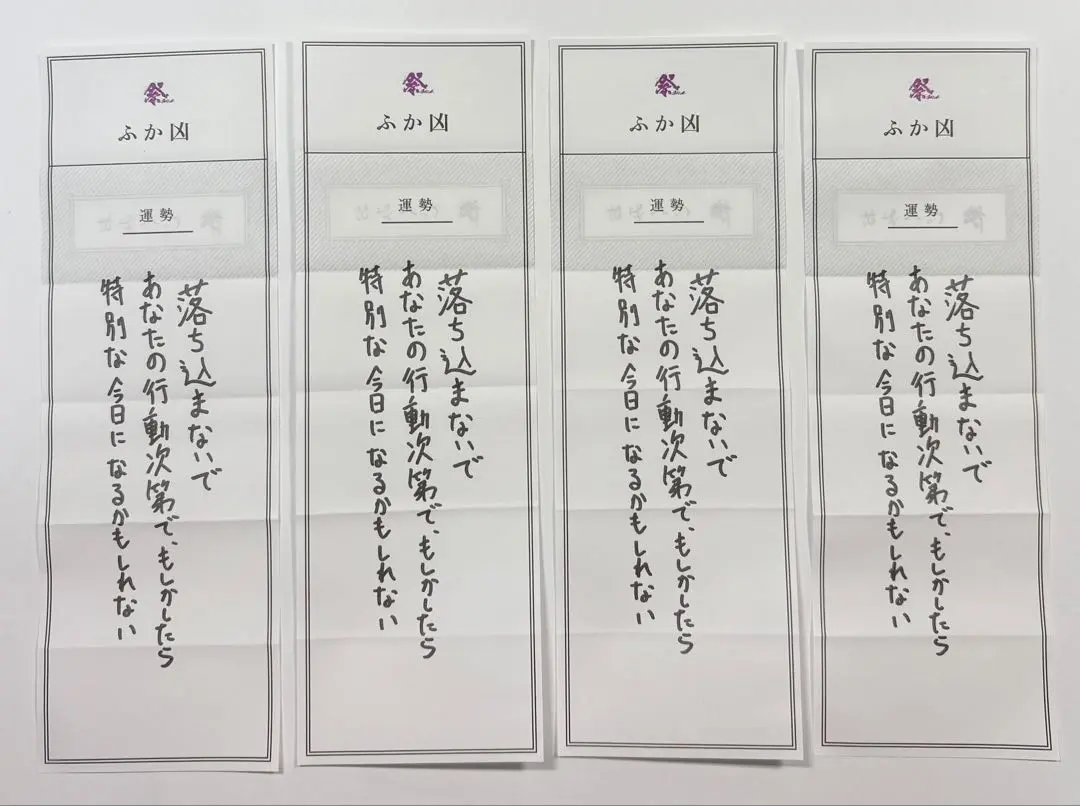 祭
ふか凶
運勢
落ち込まないで
あなたの行動次第で、もしかしたら
特別な今日になるかもしれない
祭
ふか凶
運勢
落ち込まないで
あなたの行動次第で、もしかしたら
特別な今日になるかもしれない
祭
ふか凶
運勢
落ち込まないで
あなたの行動次第で、もしかしたら
特別な今日になるかもしれない
祭
ふか凶
運勢
落ち込まないで
あなたの行動次第で、もしかしたら
特別な今日になるかもしれない